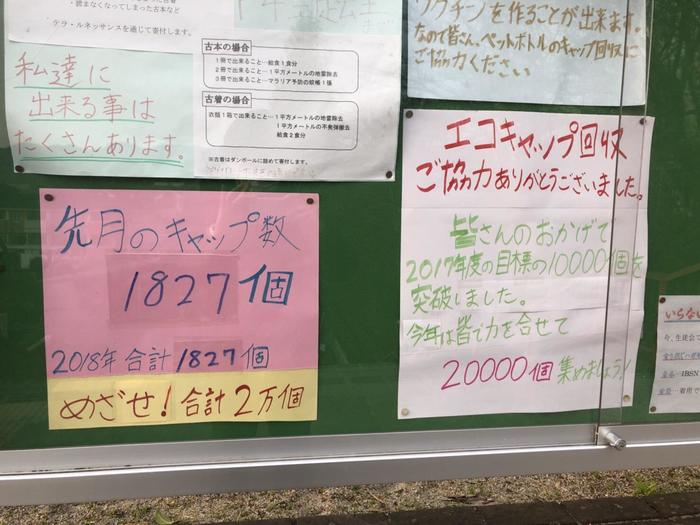 ・読まなくなってしまった古本など
テラ・ルネッサンスを通じて寄付します。
古本の場合
1冊で出来ること…給食1食分
2冊で出来ること…1平方メートルの地雷除去
3冊で出来ること…マラリア予防の蚊帳1張
古着の場合
衣類1箱で出来ること…1平方メートルの地雷除去
1平方メートルの不発弾撤去
給食2食分
※古着はダンボールに詰めて寄付します。
私達に
出来る事は
たくさんあります。
ワクチンを作ることが出来ます。
なので皆さん、ペットボトルのキャップ回収に
ご協力ください
先月のキャップ数
1827個
2018年合計1827個
めざせ!合計2万個
エコキャップ回収
ご協力ありがとうございました。
皆さんのおかげで
2017年度の目標の10000個を
突破しました。
今年は皆で力を合せて
20000個集めましょう!
いらない
今、生徒会で